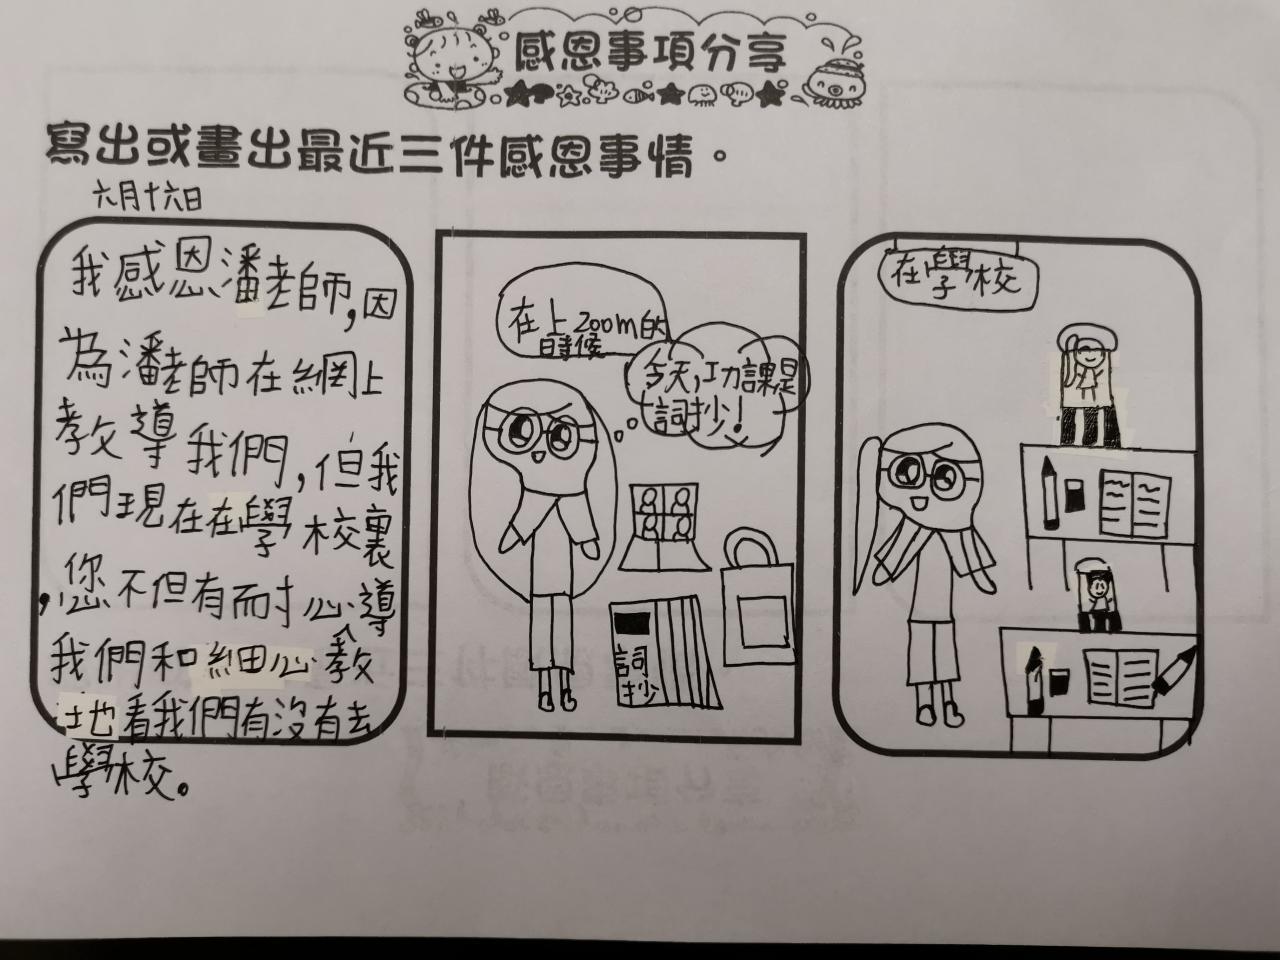 感恩事項分享
寫出或畫出最近三件感恩事情。
六月十六日
我感恩潘老師,因
為潘老師在網上
教導我們,但我
們現在在學校裏
,您不但有耐心導
我們和細心教
地看我們有沒有去
學校。
在上Zoom的
時候
今天,功課是
詞抄!
詞
抄
在學校